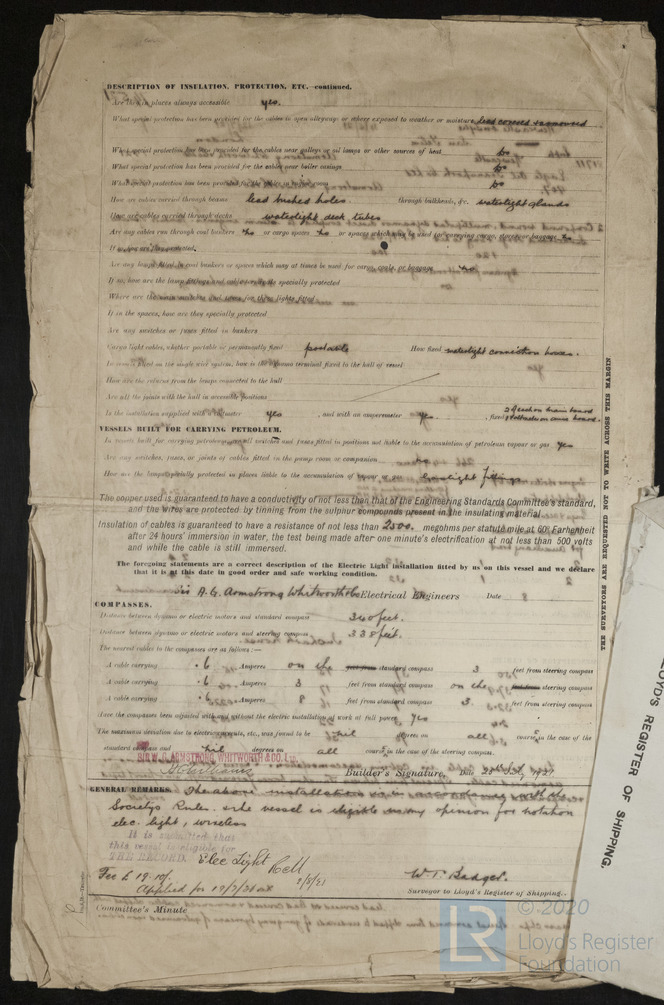 DESCRIPTION OF INSULATION, PROTECTION, ETC.—continued.
Are they in places always accessible yes.
What special protection has been provided for the cables in open alleyways or where exposed to weather or moisture lead covered & armoured
What special protection has been provided for the cables near galleys or oil lamps or other sources of heat do
What special protection has been provided for the cables near boiler casings do
What special protection has been provided for the cables in do
How are cables carried through beams lead bushed holes. through bulkheads, &c. watertight glands
How are cables carried through decks watertight deck tubes
Are any cables run through coal bunkers no or cargo spaces no or spaces which may be used for carrying cargo, stores, or baggage no
If so, how are they protected
Are any lamps fitted in coal bunkers or spaces which may at times be used for cargo, coals, or baggage no
If so, how are the lamp fittings and cable terminals specially protected
Where are the main switches and fuses for these lights fitted
If in the spaces, how are they specially protected
Are any switches or fuses fitted in bunkers
Cargo light cables, whether portable or permanently fixed portable How fixed watertight connection boxes.
In vessels fitted on the single wire system, how is the dynamo terminal fixed to the hull of vessel
How are the returns from the lamps connected to the hull
Are all the joints with the hull in accessible positions
Is the installation supplied with a voltmeter yes , and with an amperemeter yes , fixed
VESSELS BUILT FOR CARRYING PETROLEUM.
In vessels built for carrying petroleum are all switches and fuses fitted in positions not liable to the accumulation of petroleum vapour or gas yes
Are any switches, fuses, or joints of cables fitted in the pump room or companion no
How are the lamps specially protected in places liable to the accumulation of vapour or gas Gastight fittings
The copper used is guaranteed to have a conductivity of not less than that of the Engineering Standards Committee's standard,
and the wires are protected by tinning from the sulphur compounds present in the insulating material.
Insulation of cables is guaranteed to have a resistance of not less than 2500. megohms per statute mile at 60° Farhenheit
after 24 hours' immersion in water, the test being made after one minute's electrification at not less than 500 volts
and while the cable is still immersed.
The foregoing statements are a correct description of the Electric Light installation fitted by us on this vessel and we declare
that it is at this date in good order and safe working condition.
Sir A. G. Armstrong Whitworth & Co Electrical Engineers Date
COMPASSES.
Distance between dynamo or electric motors and standard compass 360 feet.
Distance between dynamo or electric motors and steering compass 338 feet.
The nearest cables to the compasses are as follows:—
A cable carrying .6 Amperes on the standard compass 3 feet from steering compass
A cable carrying .6 Amperes 3 feet from standard compass on the steering compass
A cable carrying .6 Amperes 8 feet from standard compass 3. feet from steering compass
Have the compasses been adjusted with and without the electric installation at work at full power yes
The maximum deviation due to electric currents, etc., was found to be nil degrees on all courses in the case of the
standard compass and nil degrees on all courses in the case of the steering compass.
SIR W. G. ARMSTRONG, WHITWORTH & CO. LTD.
Builder's Signature. Date 1921
GENERAL REMARKS. The above installation is in accordance with the
Societys Rules & the vessel is eligible in my opinion for notation
elec. light, wireless
It is submitted that
this vessel is eligible for
THE RECORD. Elec Light
Fee £19.10/.
Applied for
W. T. Badger.
Surveyor to Lloyd's Register of Shipping.
Committee's Minute
THE SURVEYORS ARE REQUESTED NOT TO WRITE ACROSS THIS MARGIN
LLOYD'S REGISTER OF SHIPPING.
LR
© 2020
Lloyd's Register
Foundation